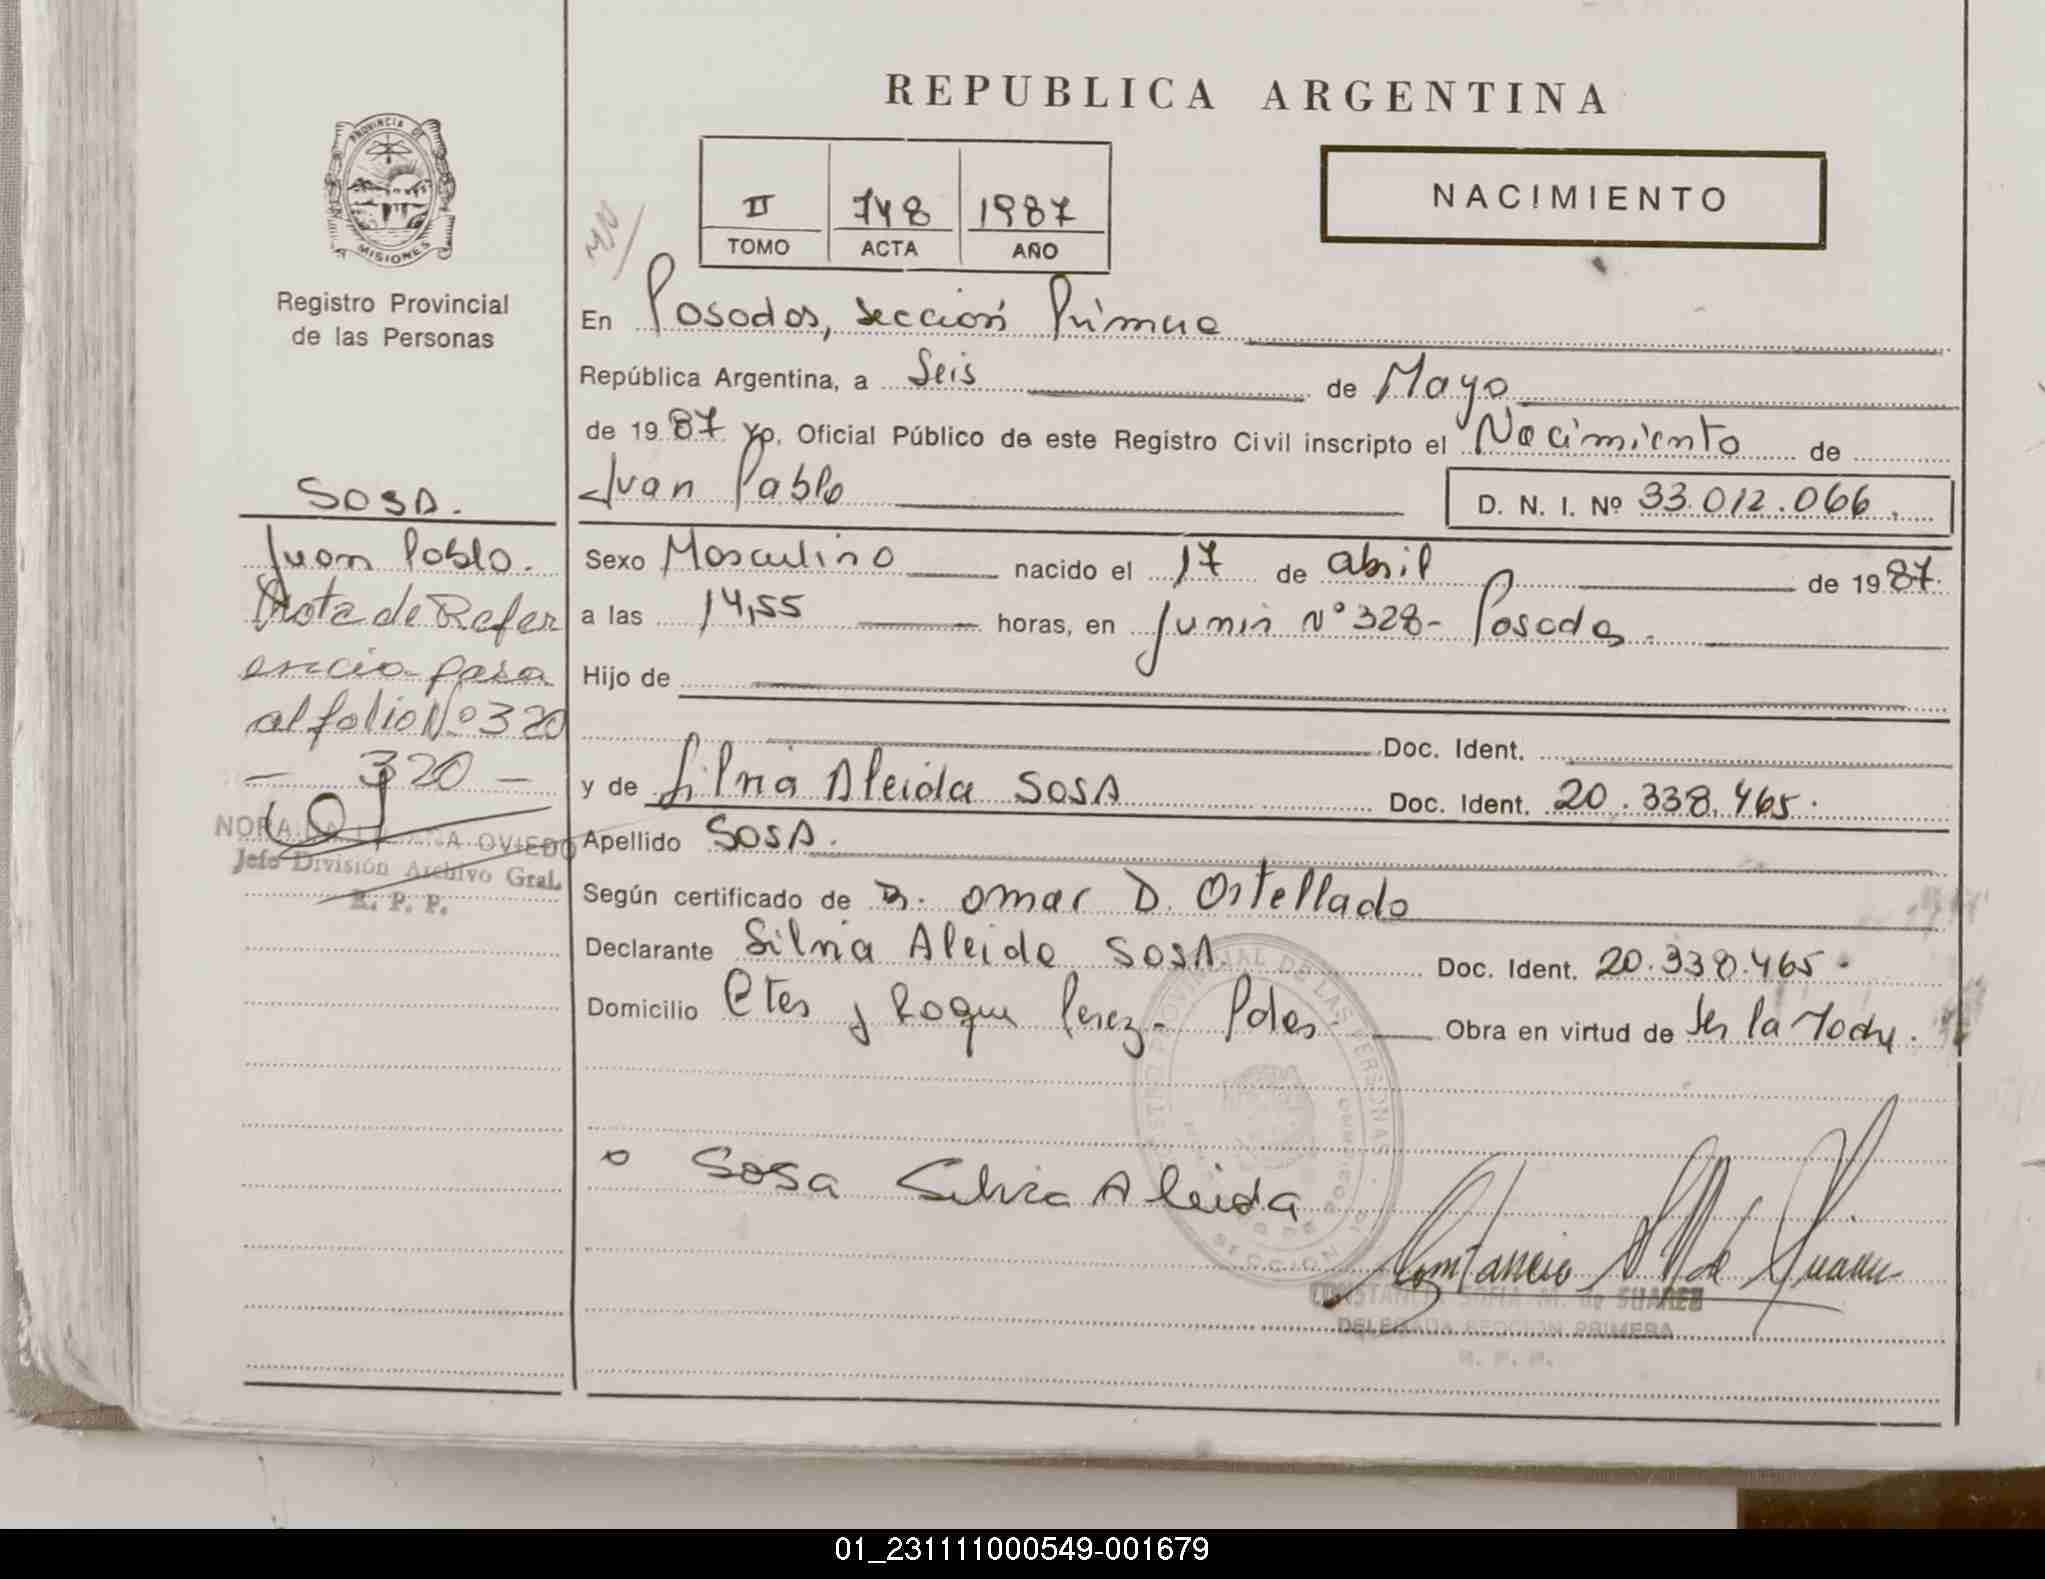 REPUBLICA ARGENTINA
PROVINCIA DE
MISIONES
Registro Provincial
de las Personas
II 748 1987
TOMO ACTA AÑO
NACIMIENTO
En Posadas, sección Primera
República Argentina, a Seis de Mayo
de 1987 Yo, Oficial Público de este Registro Civil inscripto el Nacimiento de
Juan Pablo D. N. I. Nº 33.012.066.
SOSA.
Juan Pablo.
Nota de Refer
encia pasa
al folio Nº 320
- 320 -
NORA OVIEDO
Jefe División Archivo Gral.
R. P. P.
Sexo Masculino nacido el 17 de abril de 1987.
a las 14,55 horas, en Junin Nº 328- Posadas.
Hijo de
Doc. Ident.
y de Silvia Aleida SOSA Doc. Ident. 20.338.465.
Apellido SOSA.
Según certificado de Dr. Omar D. Ostellado
Declarante Silvia Aleida SOSA. Doc. Ident. 20.338.465.
Domicilio Ctes y Roque Perez- Pdas. Obra en virtud de ser la Madre.
Sosa Silvia Aleida
CONSTANCIA SOFIA M. de SUAREZ
DELEGADA SECCION PRIMERA
R. P. P.
01_231111000549-001679